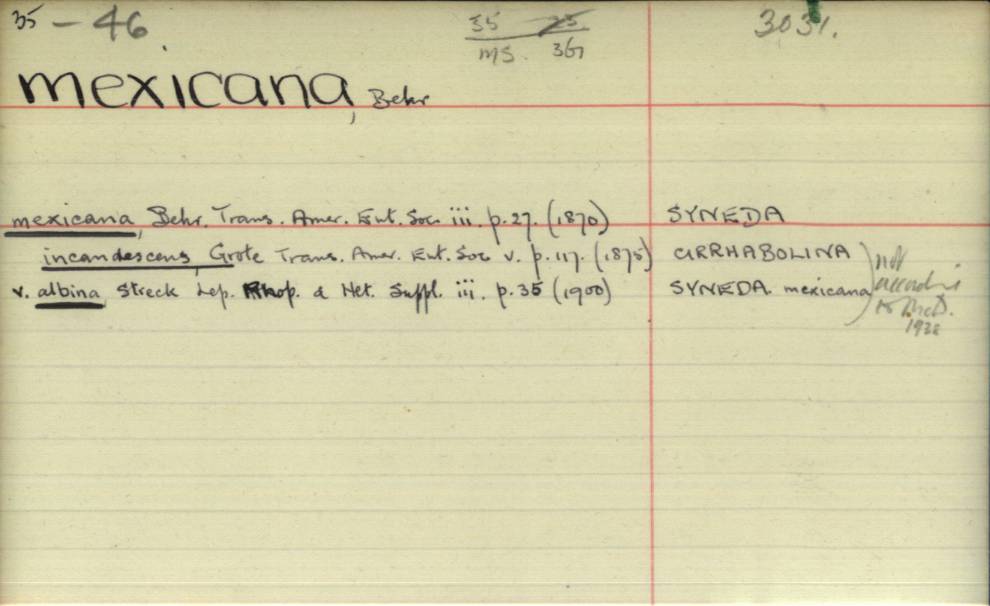 35 - 46 35 25 3031.
MS. 367
mexicana, Behr
mexicana, Behr. Trans. Amer. Ent. Soc. iii. p.27. (1870) SYNEDA
incandescens, Grote Trans. Amer. Ent. Soc v. p.117. (1875) CIRRHABOLINA
v. albina Streck Lep. Rhop. & Het. Suppl. iii. p.35 (1900) SYNEDA mexicana
not
according
to McD.
1938